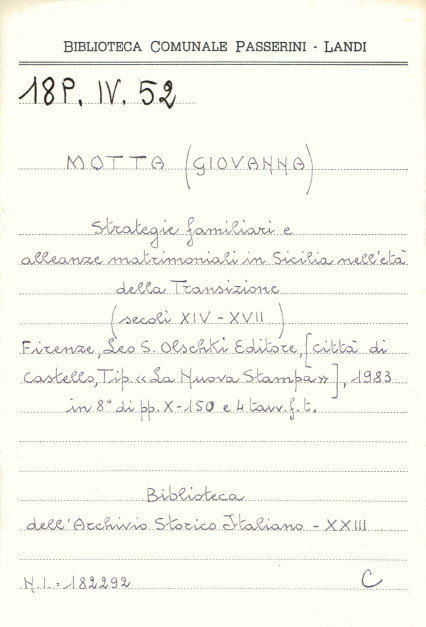 BIBLIOTECA COMUNALE PASSERINI - LANDI
18P. IV. 52
MOTTA (GIOVANNA)
Strategie familiari e
alleanze matrimoniali in Sicilia nell'età
della Transizione
(secoli XIV - XVII)
Firenze, Leo S. Olschki Editore, [città di
Castello, Tip. «La Nuova Stampa»], 1983
in 8° di pp. X-150 e 4 tavv. f. t.
Biblioteca
dell'Archivio Storico Italiano - XXIII
N.I. = 182292 C